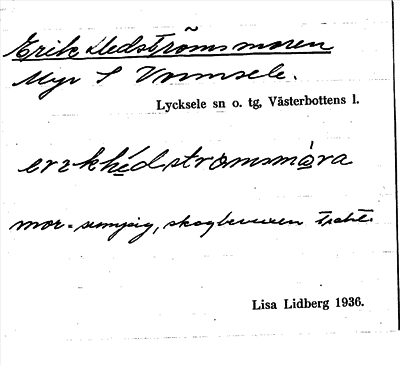 Erik Hedströmsmoren
Myr S Vormsele.
Lycksele sn o. tg, Västerbottens l.
erikhédströmsmo̱ra
mor = sumpig, skogbevuxen trakt.
Lisa Lidberg 1936.